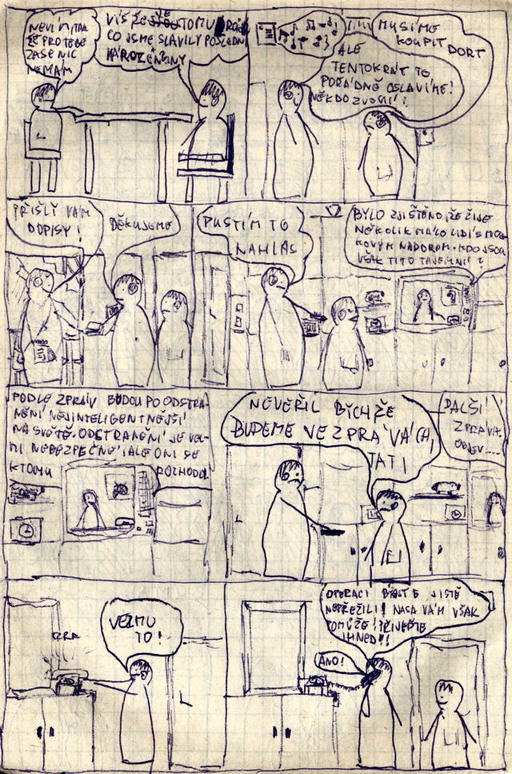 NEVÍM TAK
ŽE PRO TEBE
ZASE NIC
NEMÁM
VÍŠ ŽE JE TOMU ROK
CO JSME SLAVILY POSLEDNÍ
NAROZENINY
MUSÍME
KOUPIT DORT
ALE
TENTOKRÁT TO
POŘÁDNĚ OSLAVÍME!
NĚKDO ZVONÍ!
PŘIŠLY VÁM
DOPISY!
DĚKUJEME
PUSTÍM TO
NAHLAS
BYLO ZJIŠTĚNO, ŽE ŽIJE
NĚKOLIK MÁLO LIDÍ S MOZ-
KOVÝM NÁDOREM. KDO JSOU
VŠAK TITO TAJEMNÍ?
PODLE ZPRÁV BUDOU PO ODSTRA-
NĚNÍ NEJINTELIGENTNĚJŠÍ
NA SVĚTĚ. ODSTRANĚNÍ JE VEL-
MI NEBEZPEČNÉ, ALE ONI SE
K TOMU
ROZHODLI.
NEVĚŘIL BYCH ŽE
BUDEME VE ZPRÁVÁCH,
TATI
DALŠÍ
ZPRÁVA.
CRR
VEZMU
TO!
OPERACI BYSTE JISTĚ
NEPŘEŽILI! NASA VÁM VŠAK
POMŮŽE! PŘIJEĎTE
IHNED!!
ANO!